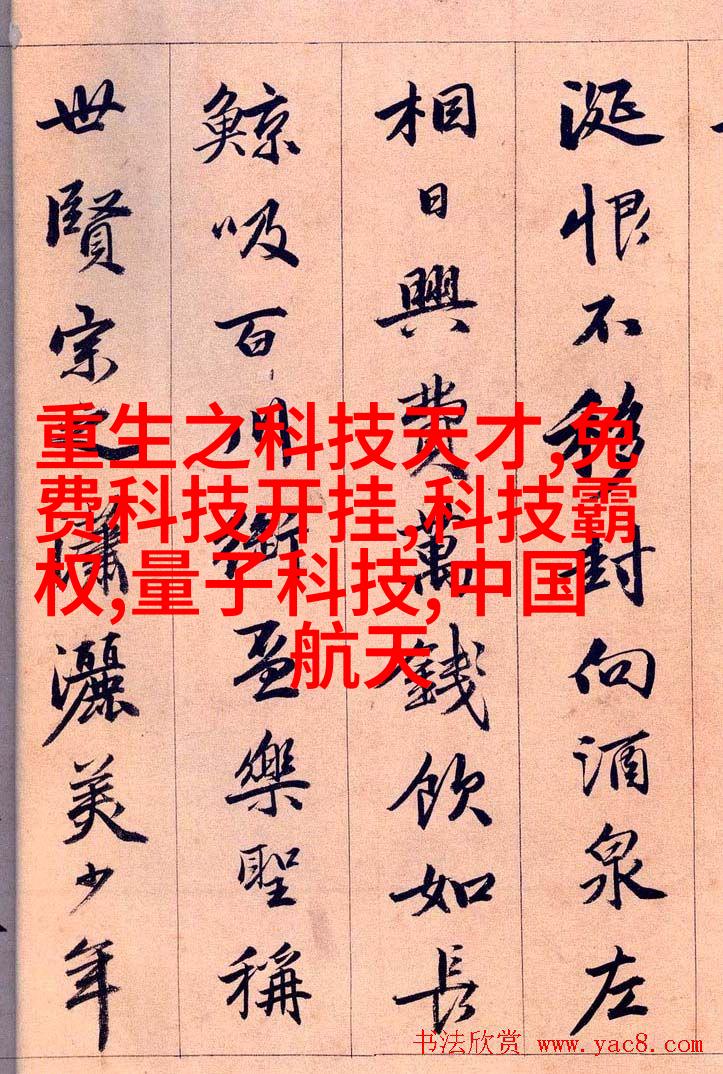 涎恨不移封向酒泉左
相日興費萬錢飲如長
鯨吸百川銜盃樂聖稱
世賢宗之瀟灑美少年
重生之科技天才,免
费科技开挂,科技霸
权,量子科技,中国
航天
书法欣赏 www.yac8.com